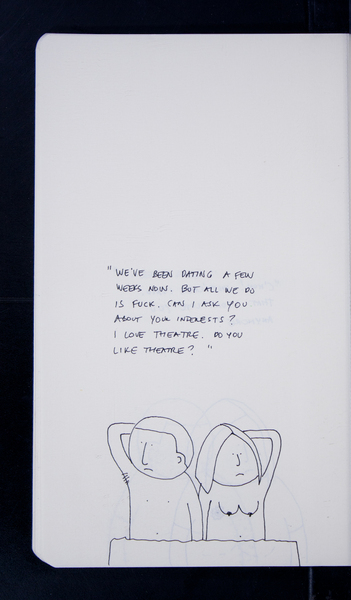 "WE'VE BEEN DATING A FEW
WEEKS NOW. BUT ALL WE DO
IS FUCK. CAN I ASK YOU
ABOUT YOUR INTERESTS?
I LOVE THEATRE. DO YOU
LIKE THEATRE? "